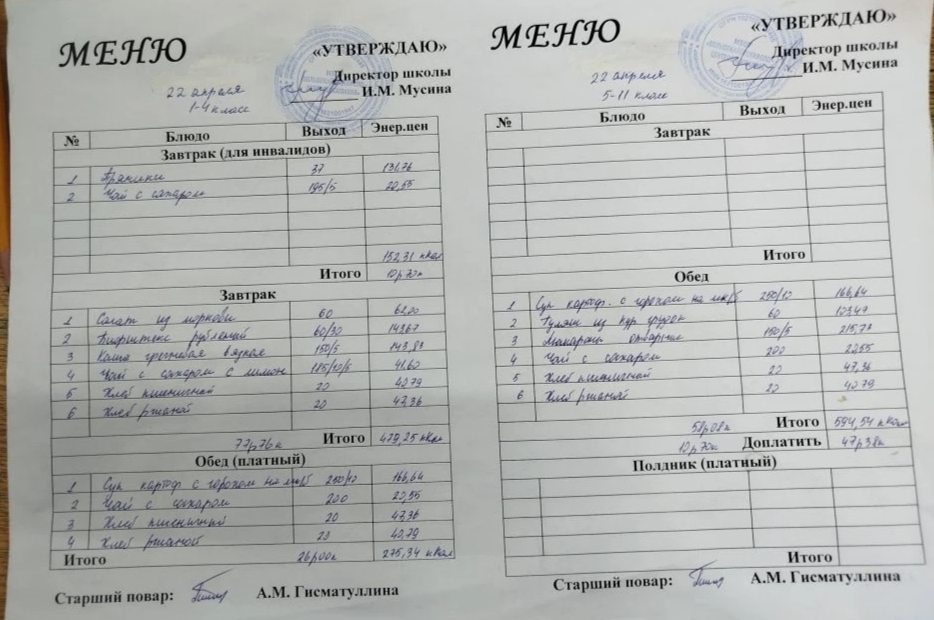 МЕНЮ
«УТВЕРЖДАЮ»
Директор школы
И.М. Мусина
22 апреля
1-4 класс
№ Блюдо Выход Энер.цен
Завтрак (для инвалидов)
1 Пряники 37 131,76
2 Чай с сахаром 195/5 20,55
152,31 ккал
Итого 10р70к
Завтрак
1 Салат из моркови 60 62,20
2 Бифштекс рубленый 60/30 143,67
3 Каша гречневая вязкая 150/5 143,83
4 Чай с сахаром с лимон 185/10/5 41,60
5 Хлеб пшеничный 20 40,79
6 Хлеб ржаной 20 47,36
77р76к Итого 479,25 ккал
Обед (платный)
1 Суп картоф с горохом на мк/б 250/10 166,64
2 Чай с сахаром 200 20,55
3 Хлеб пшеничный 20 47,36
4 Хлеб ржаной 20 40,79
Итого 26р00к 275,34 ккал
Старший повар: А.М. Гисматуллина
МЕНЮ
«УТВЕРЖДАЮ»
Директор школы
И.М. Мусина
22 апреля
5-11 класс
№ Блюдо Выход Энер.цен
Завтрак
Итого
Обед
1 Суп картоф. с горохом на мк/б 250/10 166,64
2 Гуляш из кур грудок 60
3 Макароны отварные 150/5
4 Чай с сахаром 200 20,55
5 Хлеб пшеничный 20 47,36
6 Хлеб ржаной 20 40,79
58р08к Итого 594,54 ккал
10р70к Доплатить 47р38к
Полдник (платный)
Итого
Старший повар: А.М. Гисматуллина